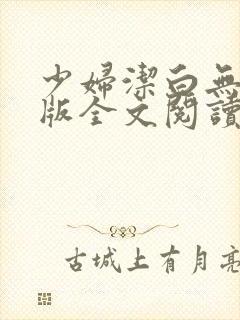 少婦潔白無
版全文閱讀
古城上有月亮